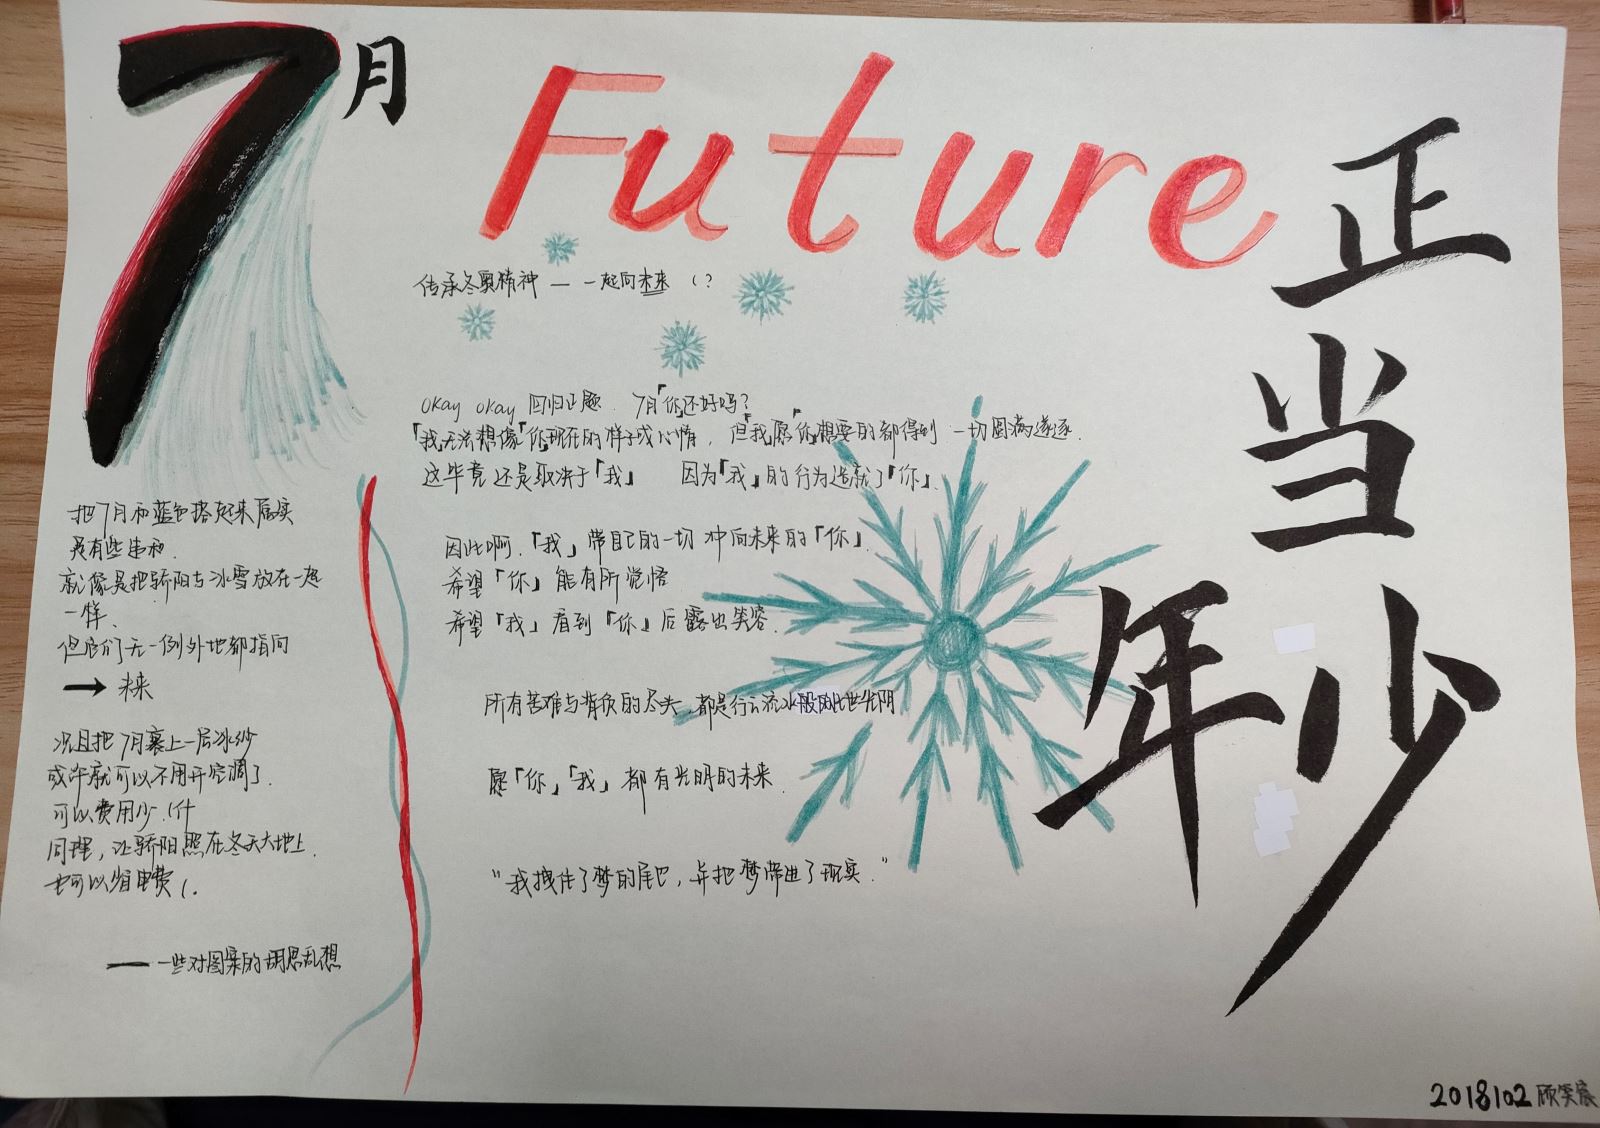 7月
Future
正当年少
传承冬奥精神 — 一起向未来 (?
okay okay 回归正题. 7月「你」还好吗?
「我」无法想像「你」现在的样子或心情, 但「我」愿「你」想要的都得到 一切圆满遂逐.
这毕竟还是取决于「我」 因为「我」的行为造就了「你」.
因此啊.「我」带自己的一切 冲向未来的「你」.
希望「你」能有所觉悟
希望「我」看到「你」后露出笑容.
所有苦难与背负的尽头, 都是行云流水般的此世光阴
愿「你」「我」都有光明的未来.
"我拽住了梦的尾巴, 并把梦带进了现实."
把7月和蓝色搭起来属实
是有些违和.
就像是把骄阳与冰雪放在一起
一样.
但它们无一例外地都指向
→ 未来
况且把7月裹上一层冰纱
或许就可以不用开空调了.
可以费用少
同理, 让骄阳照在冬天大地上.
也可以省电费(.
—— 一些对图案的胡思乱想
2018102 顾笑宸